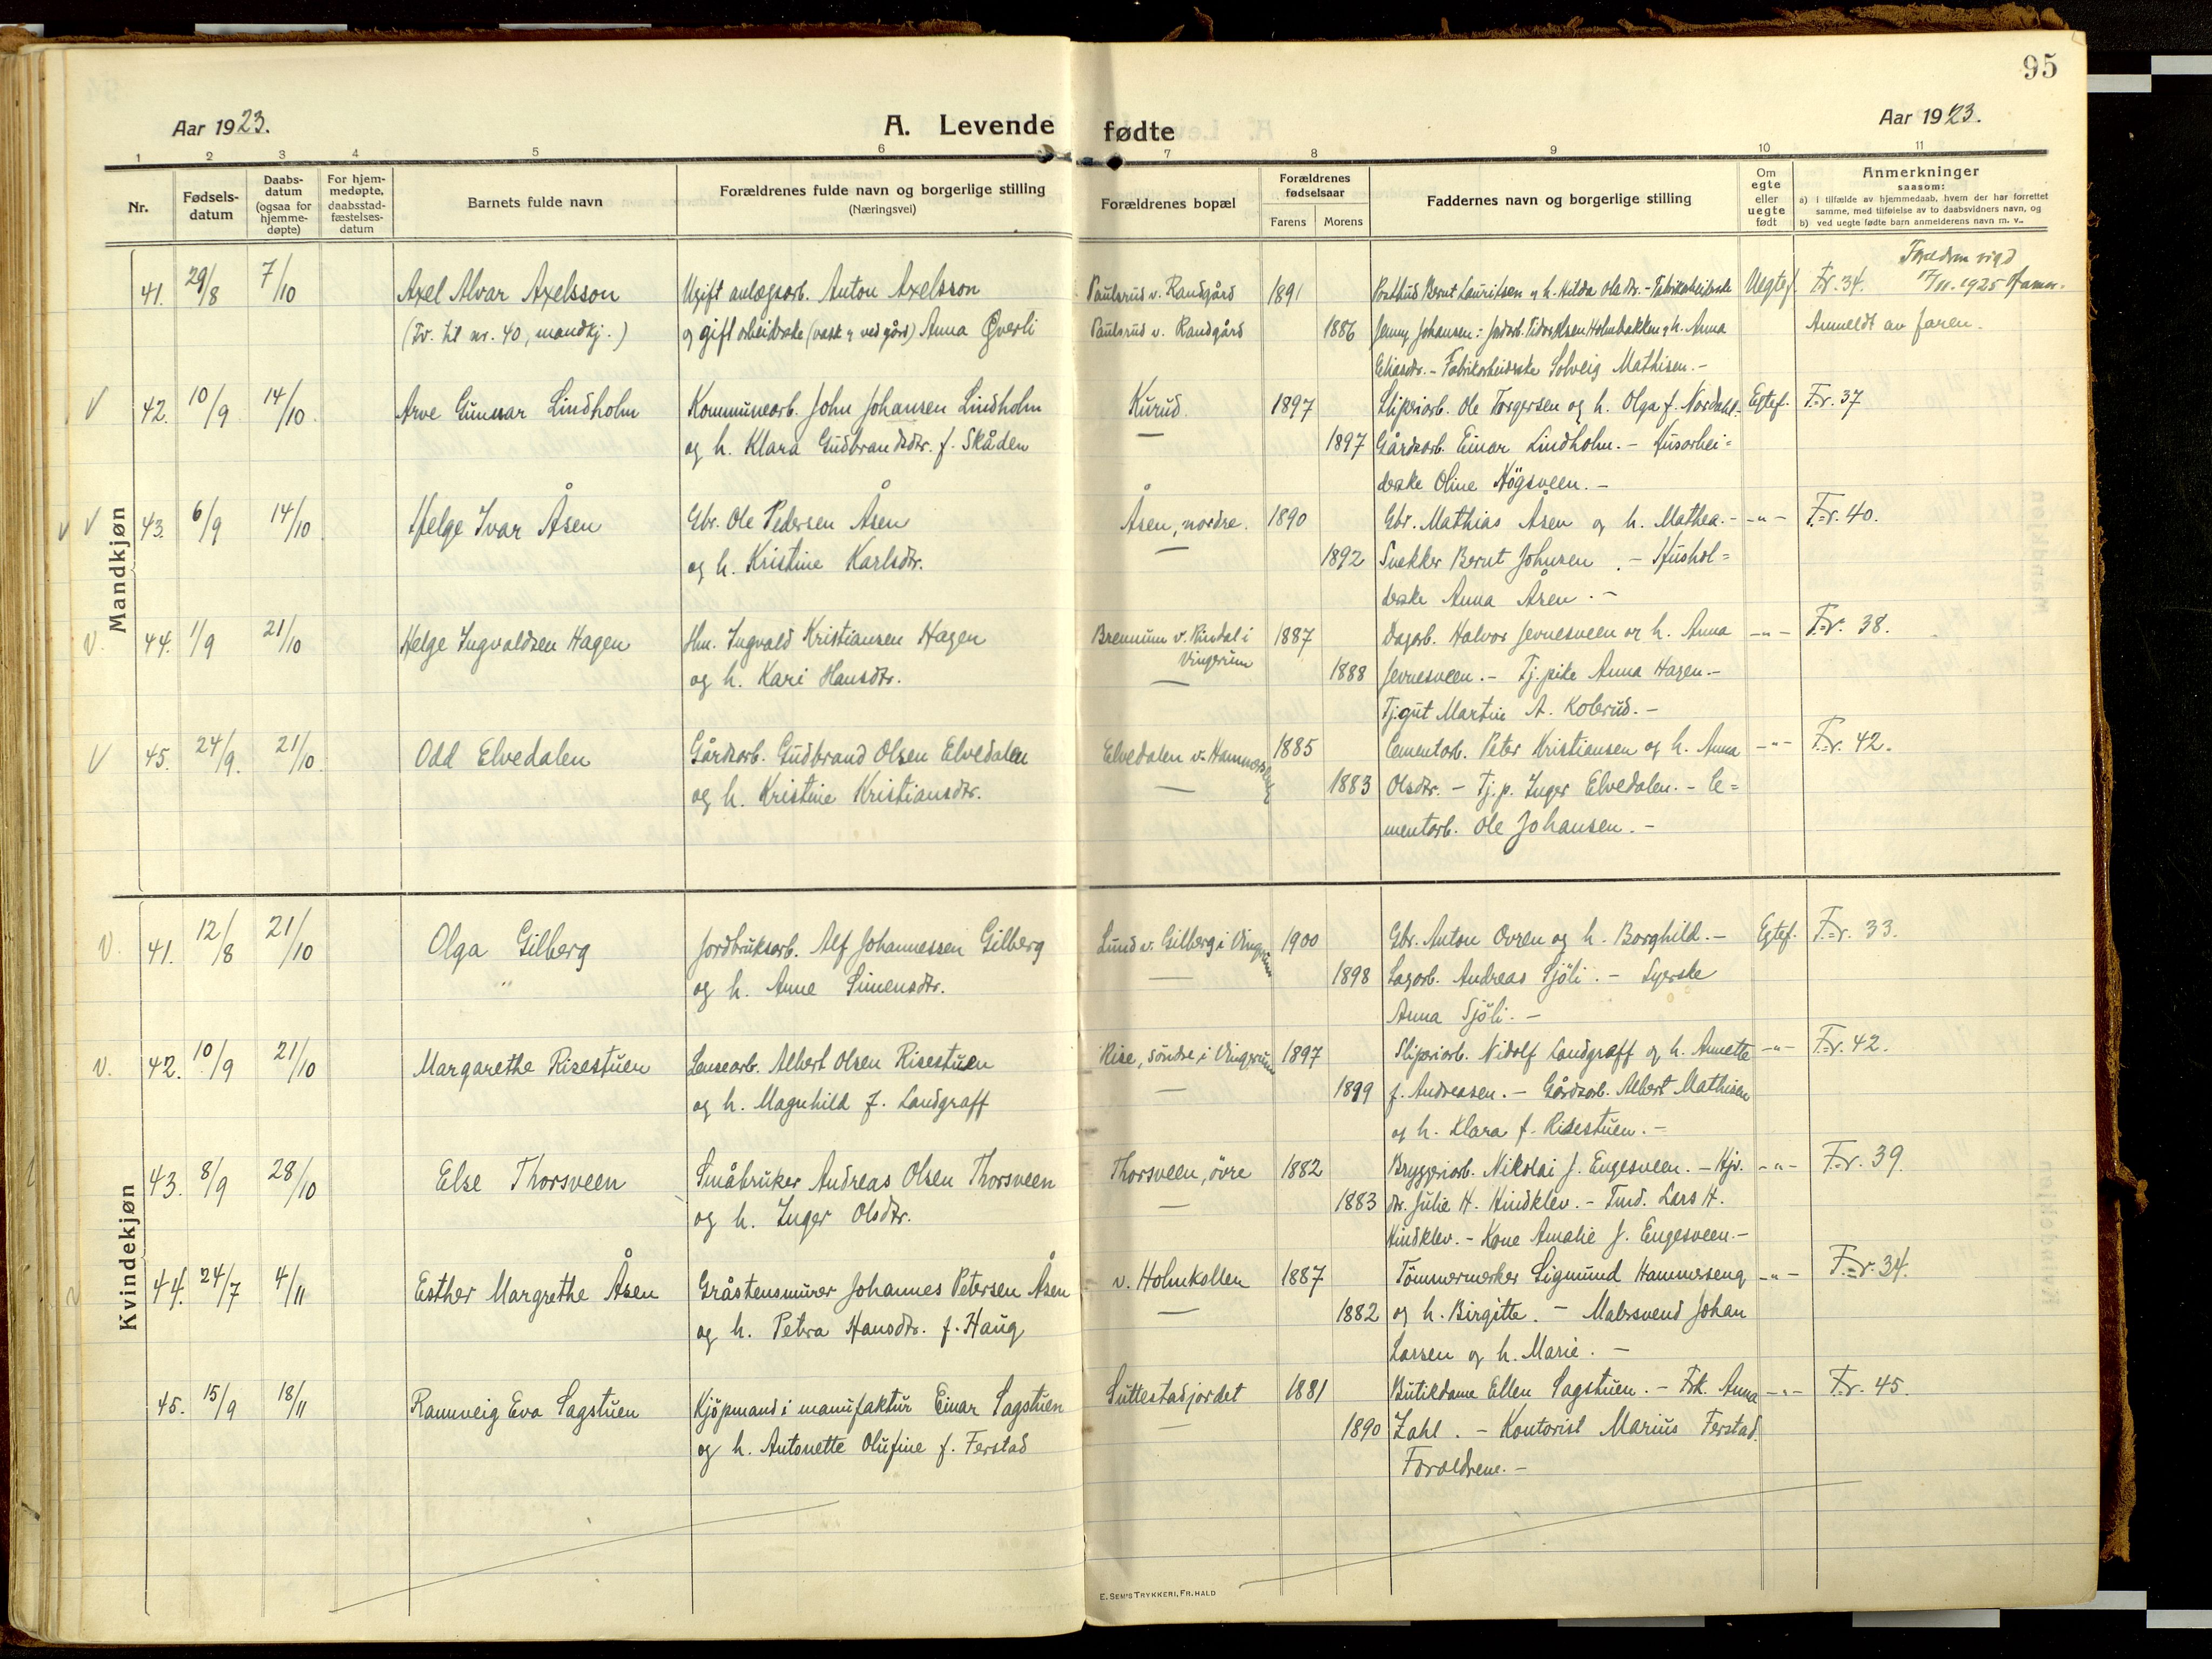 95
Aar 1923.
A. Levende fødte
Aar 1923.
1 2 3 4 5 6 7 8 9 10 11
Nr.
Fødsels-
datum
Daabs-
datum
(ogsaa for
hjemme-
døpte)
For hjem-
medøpte,
daabsstad-
fæstelses-
datum
Barnets fulde navn
Forældrenes fulde navn og borgerlige stilling
(Næringsvei)
Forældrenes bopæl
Forældrenes
fødselsaar
Farens Morens
Faddernes navn og borgerlige stilling
Om
egte
eller
uegte
født
Anmerkninger
saasom:
a) i tilfælde av hjemmedaab, hvem der har forrettet
samme, med tilføielse av to daabsvidners navn, og
b) ved uegte fødte barn anmelderens navn m. v..
Mandkjøn
Foreldren vigd
41. 29/8 7/10 Axel Alvar Axelsson Ugift anlegsarb. Anton Axelsson Paulsrud v. Randgård 1891 Bernt Lauritsen og h. Hilda Olsdtr. - Fabrikarbeiderske Uegtef. Fr. 34. 17/11. 1925 Hamar.
(Tv. til nr. 40, mandkj.) og gift arbeiderske (vask og ved gård) Anna Øverli Paulsrud v. Randgård 1886 Jenny Johansen: Jordarb. Olsen Holmbakken og h. Anna Anmeldt av faren.
Eliasdr. - Fabrikarbeiderske Solveig Mathisen. -
V 42. 10/9 14/10 Arve Gunnar Lindholm Kommunearb. John Johansen Lindholm Kurud. 1897 Sliperiarb. Ole Torgersen og h. Olga f. Nordahl. - Egtef. F.r. 37
og h. Klara Gudbrandsdtr. f. Skåden — 1897 Gårdsarb. Einar Lindholm. - Husarbei=
derske Oline Högsveen. -
V V 43. 6/9 14/10 Helge Ivar Åsen Gbr. Ole Pedersen Åsen Åsen, nordre. 1890 Gbr. Mathias Åsen og h. Mathea. - -"- F.r. 40.
og h. Kristine Karlsdtr. — 1892 Snekker Bernt Johnsen. - Hushol=
derske Anna Åsen. -
V. 44. 1/9 21/10 Helge Ingvaldsen Hagen Hm. Ingvald Kristiansen Hagen Brennum v. Rindal i 1887 Dagarb. Halvor Jevnesveen og h. Anna -"- F.r. 38.
Vingrum
og h. Kari Hansdtr. — 1888 Jevnesveen. - Tj.pike Anna Hagen. -
Tj.gut Martin A. Kolerud. -
V 45. 24/9. 21/10. Odd Elvedalen Gårdsarb. Gudbrand Olsen Elvedalen Elvedalen v. Hammerseng 1885 Cementarb. Peter Kristiansen og h. Anna -"- F.r. 42.
og h. Kristine Kristiansdtr. — 1883 Olsdtr. - Tj.p. Inger Elvedalen. - Ce=
mentarb. Ole Johansen. -
Kvindekjøn
V. 41. 12/8 21/10 Olga Gilberg Jordbruksarb. Alf Johannessen Gilberg Lund v. Gilberg i Vingrum 1900 Gbr. Anton Ovren og h. Borghild. - Egtef. F.r. 33.
og h. Anne Simensdtr. — 1898 Lagarb. Andreas Sjöli. - Syerske
Anna Sjöli. -
V. 42. 10/9 21/10 Margarethe Risestuen Lensearb. Albert Olsen Risestuen Rise, söndre i Vingrum 1897 Sliperiarb. Nidolf Landgraff og h. Annette -"- F.r. 42.
og h. Magnhild f. Landgraff — 1899 f. Andreasen. - Gårdsarb. Albert Mathisen
og h. Klara f. Risestuen. -
43. 8/9 28/10 Else Thorsveen Småbruker Andreas Olsen Thorsveen Thorsveen, övre 1882 Bryggeriarb. Nikolai J. Engesveen. - Hjv. -"- F.r. 39.
og h. Inger Olsdtr. — 1883 dtr. Julie H. Hindklev. - Tmd. Lars H.
Hindklev. - Kone Amalie J. Engesveen. -
44. 24/7 4/11 Esther Margrethe Åsen Gråstensmurer Johannes Petersen Åsen v. Holmkollen 1887 Tömmermerker Sigmund Hammerseng -"- F.r. 34.
og h. Petra Hansdtr. f. Haug — 1882 og h. Birgitte. - Malersvend Johan
Larsen og h. Marie. -
45. 15/9 18/11 Rannveig Eva Sagstuen Kjöpmand i manufaktur Einar Sagstuen Suttestadjordet 1881 Butikdame Ellen Sagstuen. - Frk. Anna -"- F.r. 45.
og h. Antonette Olufine f. Ferstad — 1890 Zahl. - Kontorist Marius Ferstad.
Foreldrene. -
E. SEM'S TRYKKERI, FR.HALD